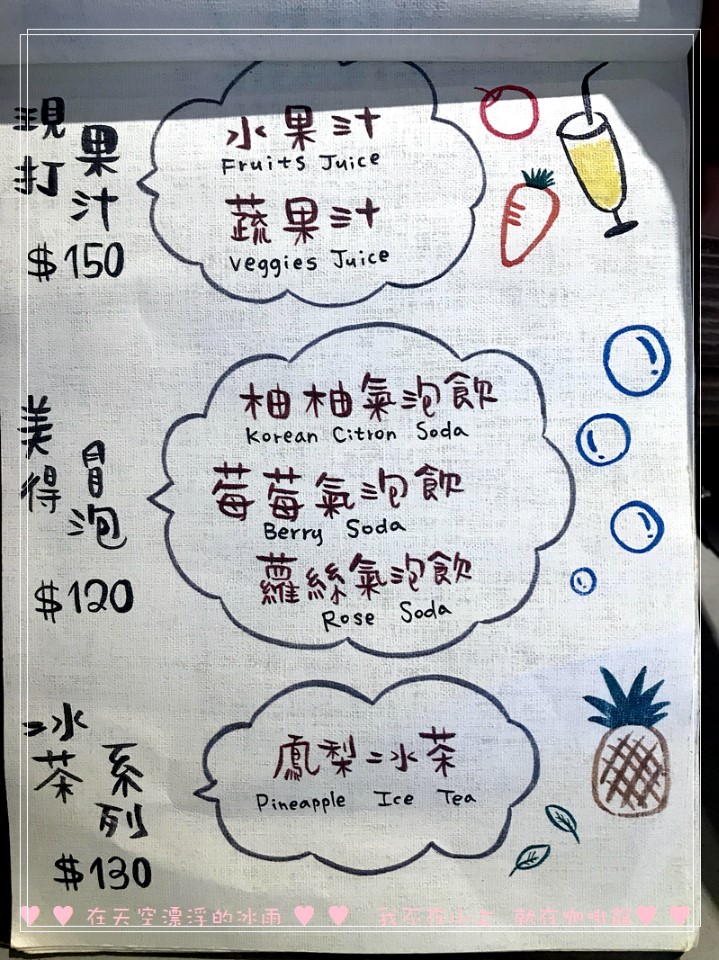 現打果汁
$150
水果汁
Fruits Juice
蔬果汁
Veggies Juice
美得冒泡
$120
柚柚氣泡飲
Korean Citron Soda
莓莓氣泡飲
Berry Soda
蘿絲氣泡飲
Rose Soda
冰茶系列
$130
鳳梨冰茶
Pineapple Ice Tea
♥ ♥ 在天空漂浮的冰雨 ♥ ♥ 我不在山上 就在咖啡館 ♥ ♥